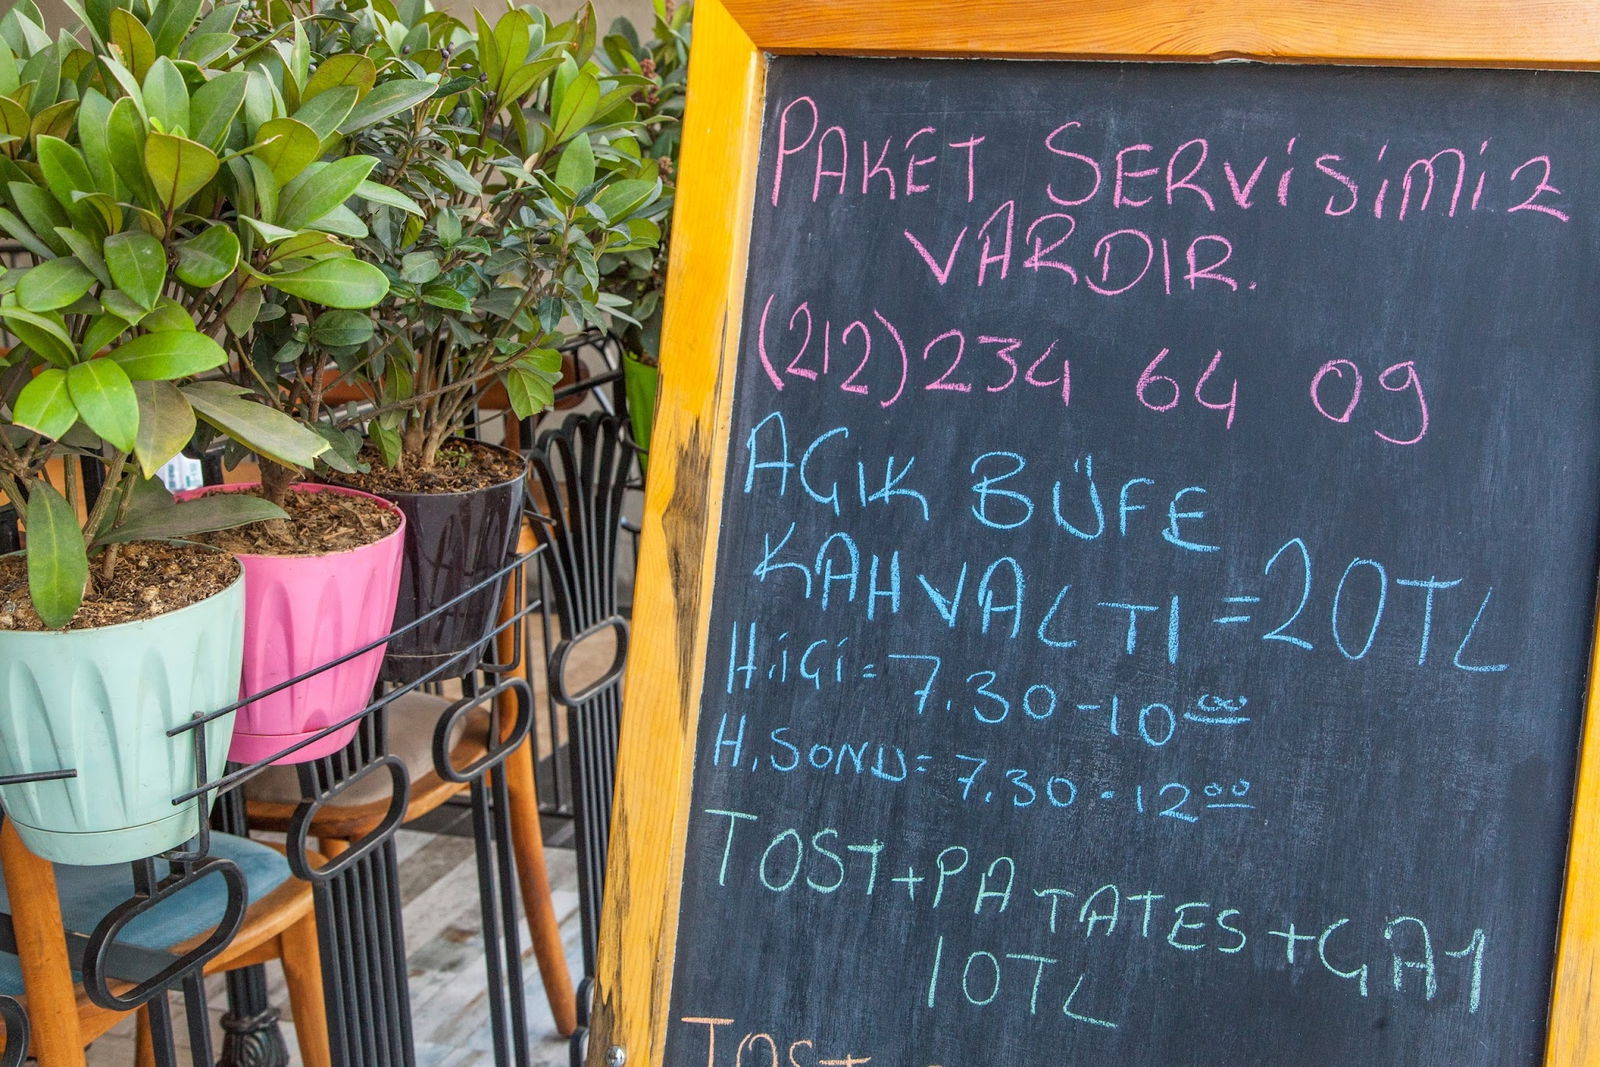 PAKET SERVİSİMİZ
VARDIR.
(212) 234 64 09
AÇIK BÜFE
KAHVALTI=20TL
H.İÇİ=7.30-10⁰⁰
H.SONU=7.30-12⁰⁰
TOST+PATATES+ÇAY
10TL
TOST